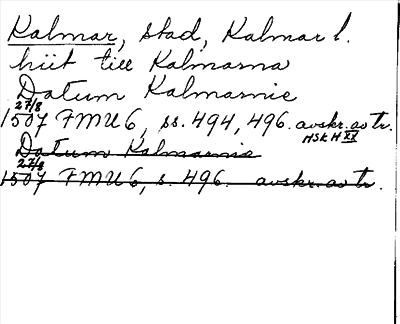 Kalmar, stad, Kalmar l.
hiit till Kalmarna
Datum Kalmarnie
27/8
1507 FMU 6, ss. 494, 496. avskr. av tr.
HSK H XX
Datum Kalmarnie
27/8
1507 FMU 6, s. 496. avskr. av tr.